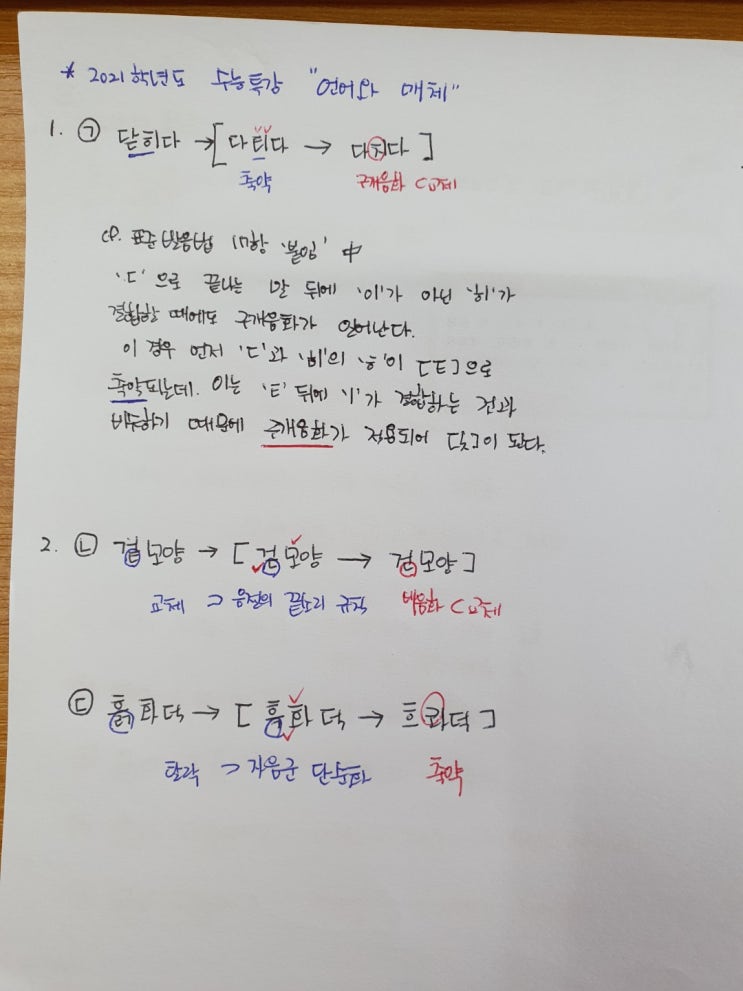 * 2021학년도 수능특강 "언어와 매체"
1. ㉠ 닫히다 → [다티다 → 다치다]
축약 구개음화 ⊂ 교체
cf. 표준발음법 17항 '붙임' 中
'ㄷ'으로 끝나는 말 뒤에 '이'가 아닌 '히'가
결합할 때에도 구개음화가 일어난다.
이 경우 먼저 'ㄷ'과 '히'의 'ㅎ'이 [ㅌ]으로
축약되는데. 이는 'ㅌ' 뒤에 'ㅣ'가 결합하는 것과
비슷하기 때문에 구개음화가 적용되어 [ㅊ]이 된다.
2. ㉡ 겉모양 → [걷모양 → 건모양]
교체 ⊃ 음절의 끝소리 규칙 비음화 ⊂ 교체
㉢ 흙화덕 → [흑화덕 → 흐콰덕]
탈락 ⊃ 자음군 단순화 축약